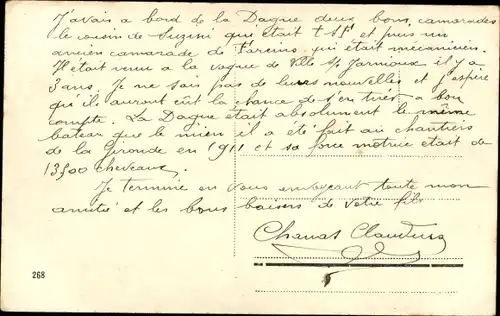 J'avais a bord de la Dague deux bons camarades
le cousin de Suzini qui était t S f et puis un
ancien camarade de qui était mécanicien.
Il était venu a la vogue de Ville s/ Jarnioux il y a
3 ans. Je ne sais pas de leurs nouvelles et j'espère
qu'ils auront eût la chance de s'en tirer a bon
compte. La Dague était absolument le même
bateau que le mien il a été fait au chantiers
de la Gironde en 1911 et sa force motrice était de
13500 chevaux.
Je termine en vous embrassant toute mon
amitié et les bons baisers de votre fils
Chanas Claudius
268